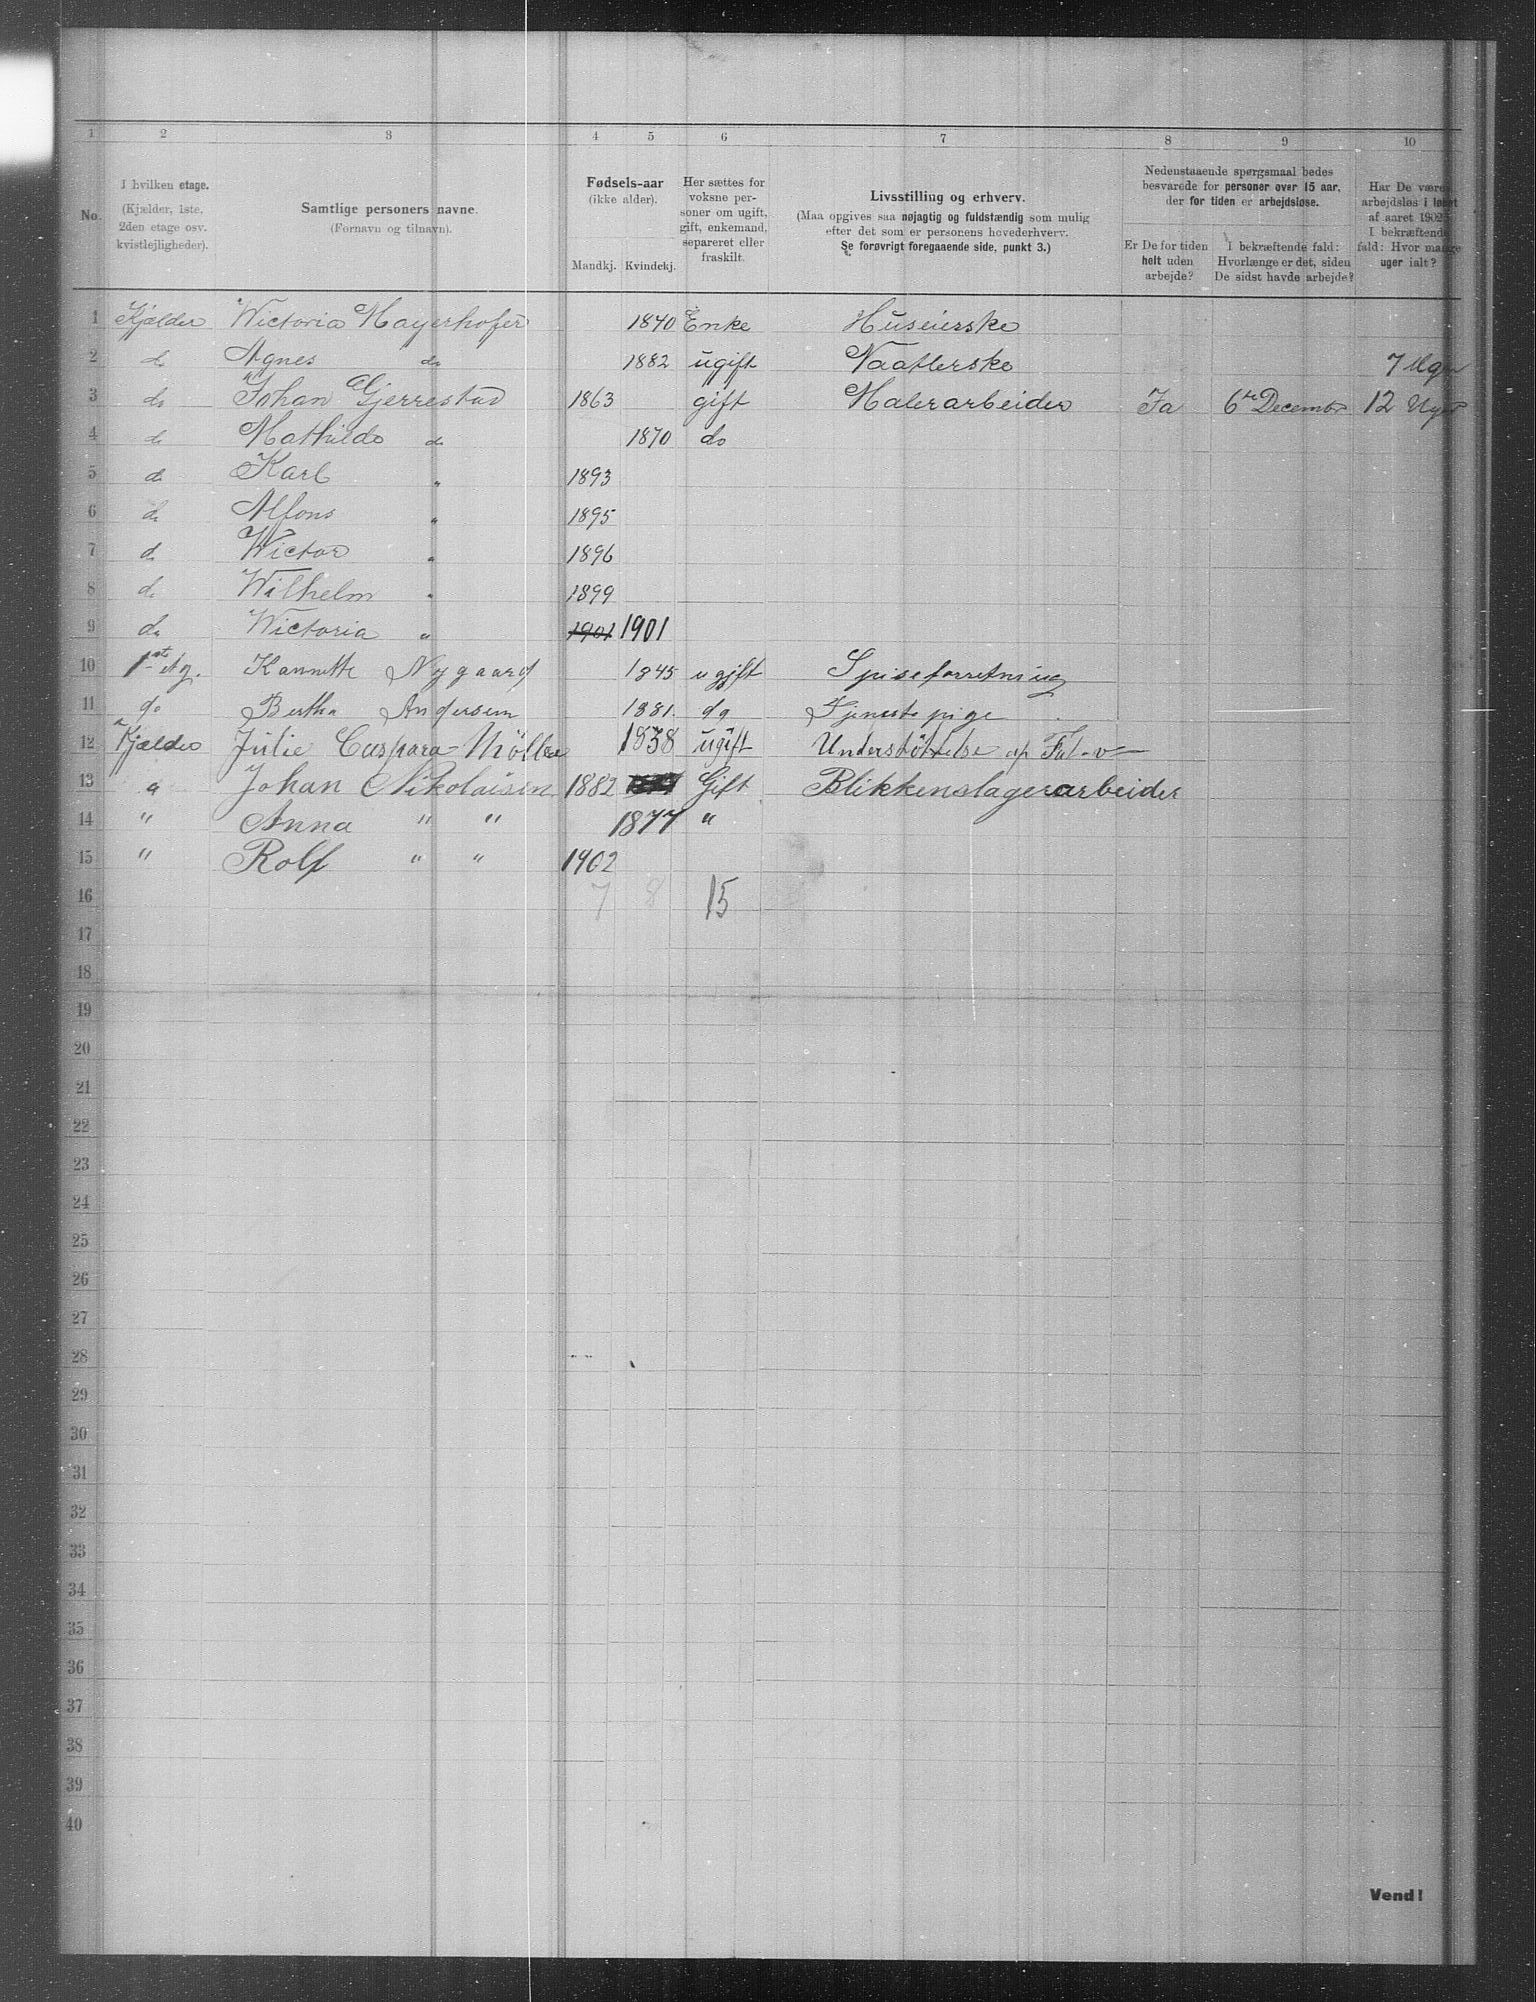 1 2 3 4 5 6 7 8 9 10
No.
I hvilken etage.
(Kjælder, 1ste,
2den etage osv.
kvistlejligheder).
Samtlige personers navne.
(Fornavn og tilnavn).
Fødsels-aar
(ikke alder).
Mandkj. Kvindekj.
Her sættes for
voksne per-
soner om ugift,
gift, enkemand,
separeret eller
fraskilt.
Livsstilling og erhverv.
(Maa opgives saa nøjagtig og fuldstændig som mulig
efter det som er personens hovederhverv.
Se forøvrigt foregaaende side, punkt 3.)
Nedenstaaende spørgsmaal bedes
besvarede for personer over 15 aar,
der for tiden er arbejdsløse.
Er De for tiden
helt uden
arbejde?
I bekræftende fald:
Hvorlænge er det, siden
De sidst havde arbejde?
Har De være
arbejdsløs i løbet
af aaret 1902
I bekræftende
fald: Hvor mange
uger ialt?
1 Kjælder Wictoria Mayerhofer 1840 Enke Huseierske
2 do Agnes do 1882 ugift Vaatlerske 7
3 do Johan Gjerrestad 1863 gift Malerarbeider Ja 6te December 12 Uger
4 do Mathilde do 1870 do
5 do Karl " 1893
6 do Alfons " 1895
7 do Wictor " 1896
8 do Wilhelm " 1899
9 do Wictoria " 1901 1901
10 1st Nygaard 1845 ugift Spiseforretning
11 do Bertha Andersen 1881. do Tjenestepige
12 Kjælder Julie Caspara Möller 1838 ugift Understöttelse af
13 " Johan Nikolaisen 1882 Gift Blikkenslagerarbeider
14 " Anna " " 1877 "
15 " Rolf " " 1902
16 7 8 15
17
18
19
20
21
22
23
24
25
26
27
28
29
30
31
32
33
34
35
36
37
38
39
40
Vend!